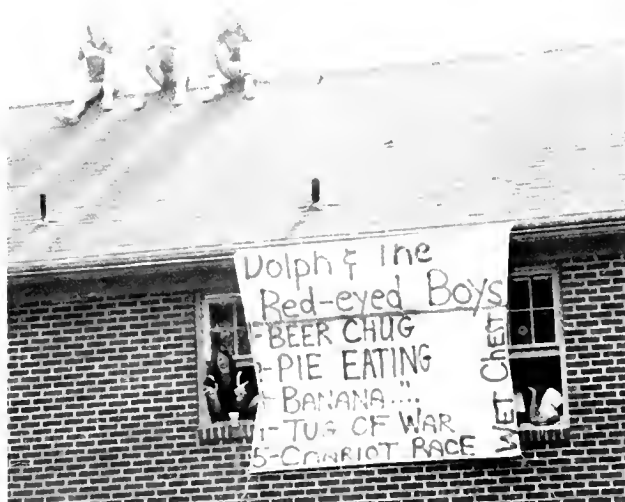 Dolph & The
Red-eyed Boys
1-BEER CHUG
2-PIE EATING
3-BANANA "..
4-TUG OF WAR
5-CHARIOT RACE
WET CHEST